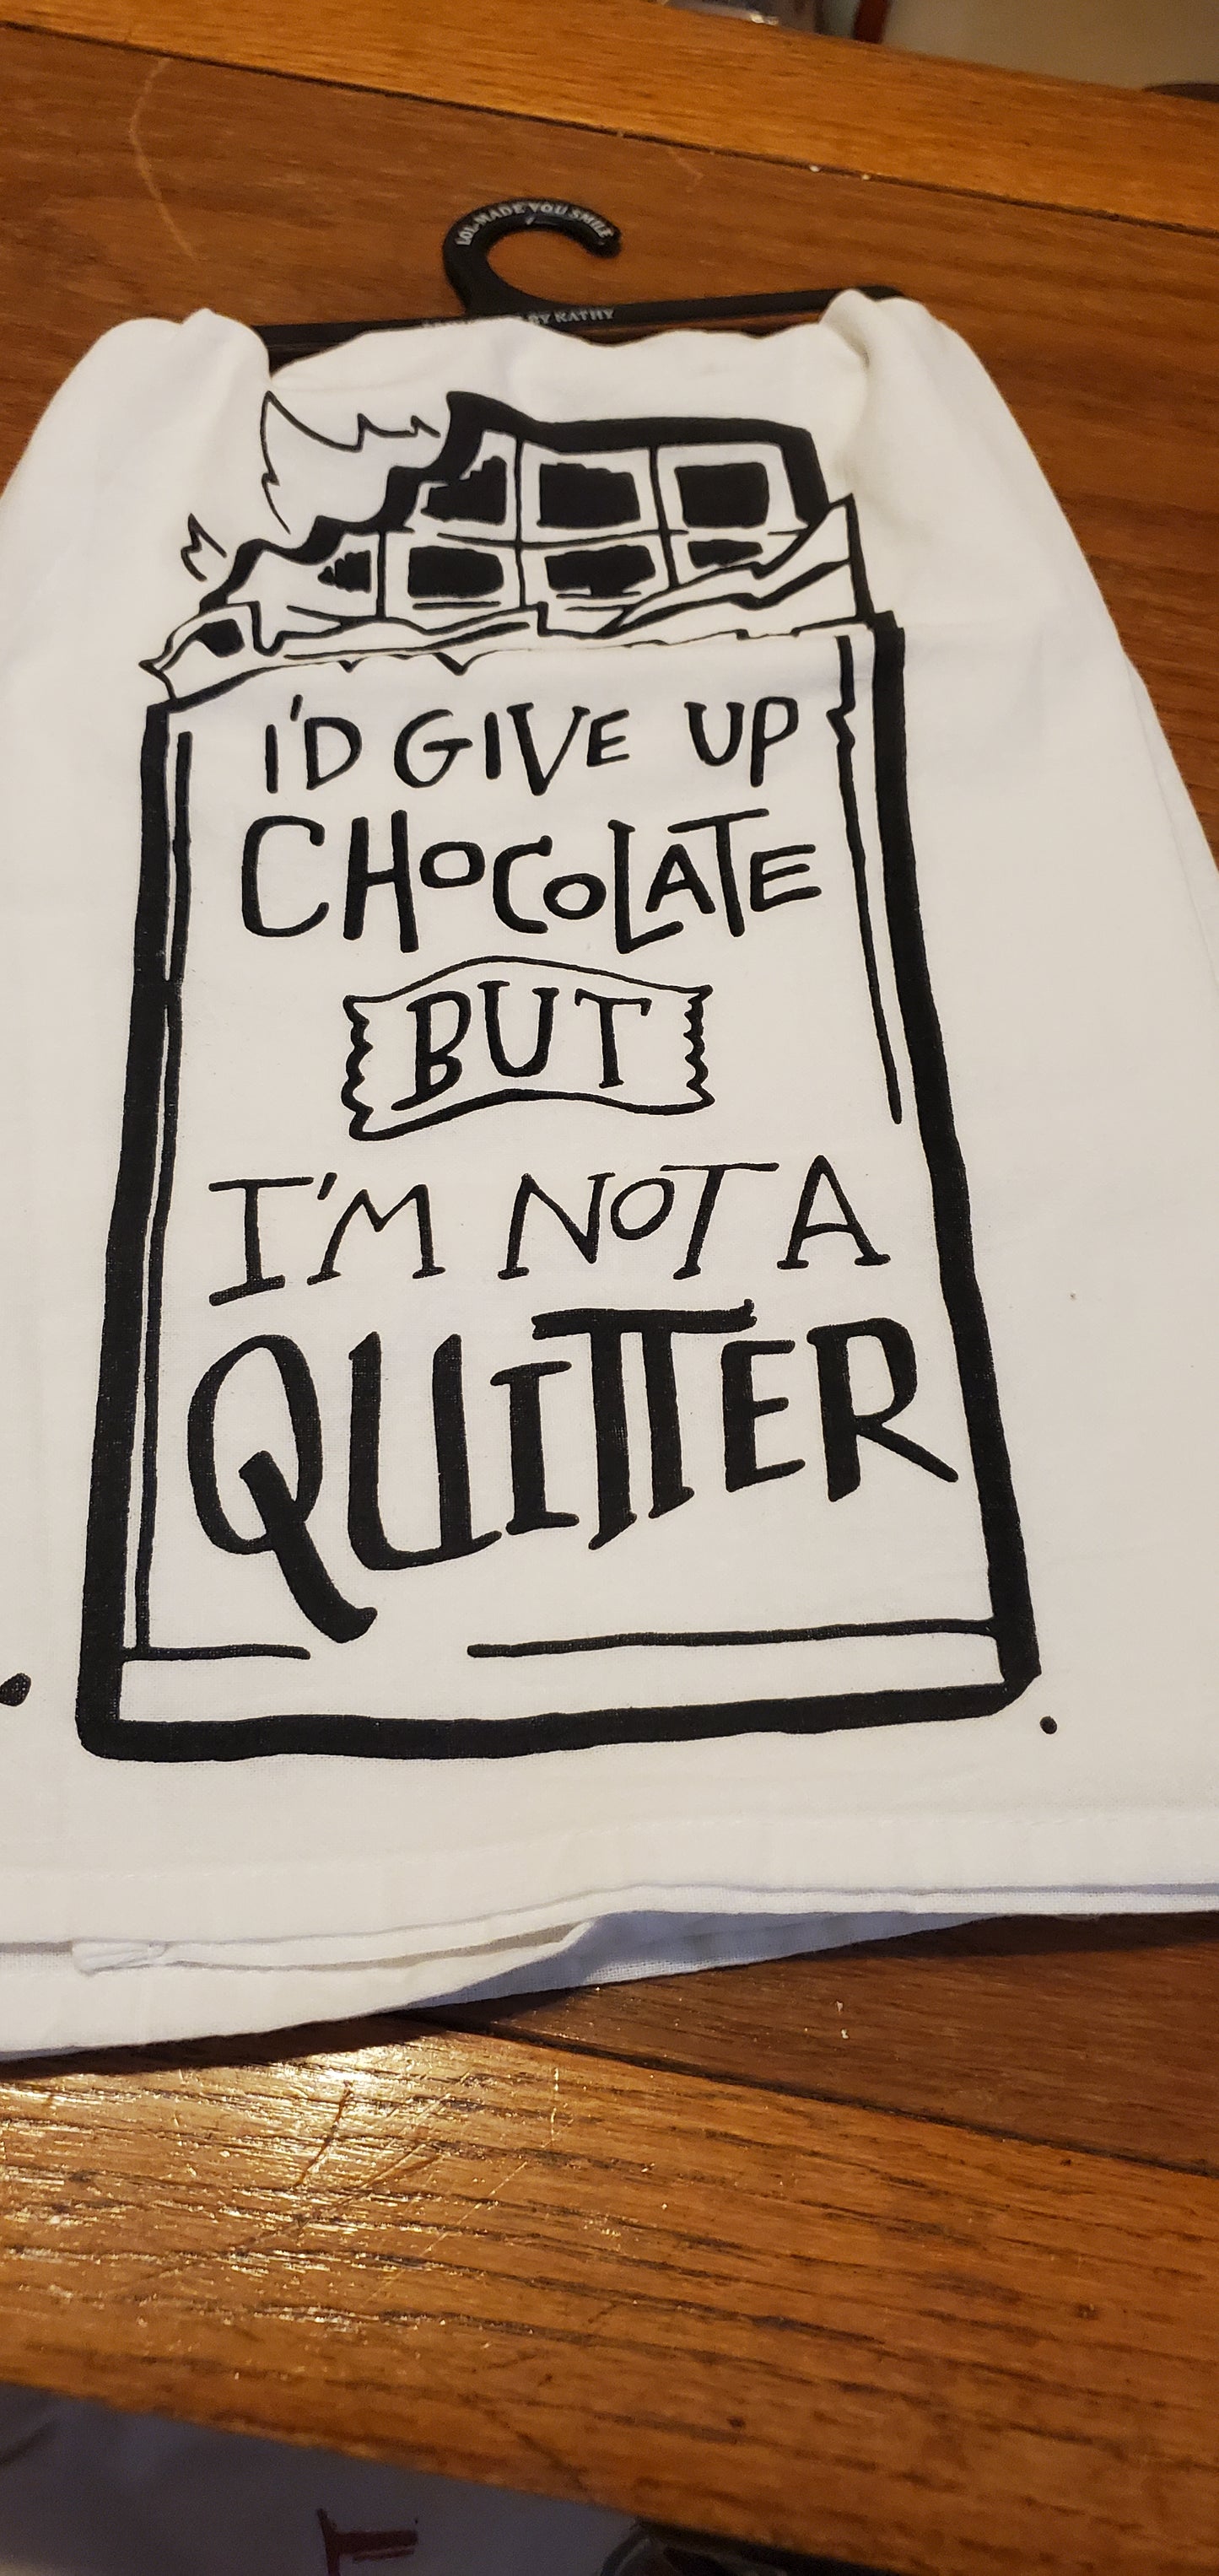 LOL MADE YOU SMILE
BY KATHY
I'D GIVE UP
CHOCOLATE
BUT
I'M NOT A
QUITTER